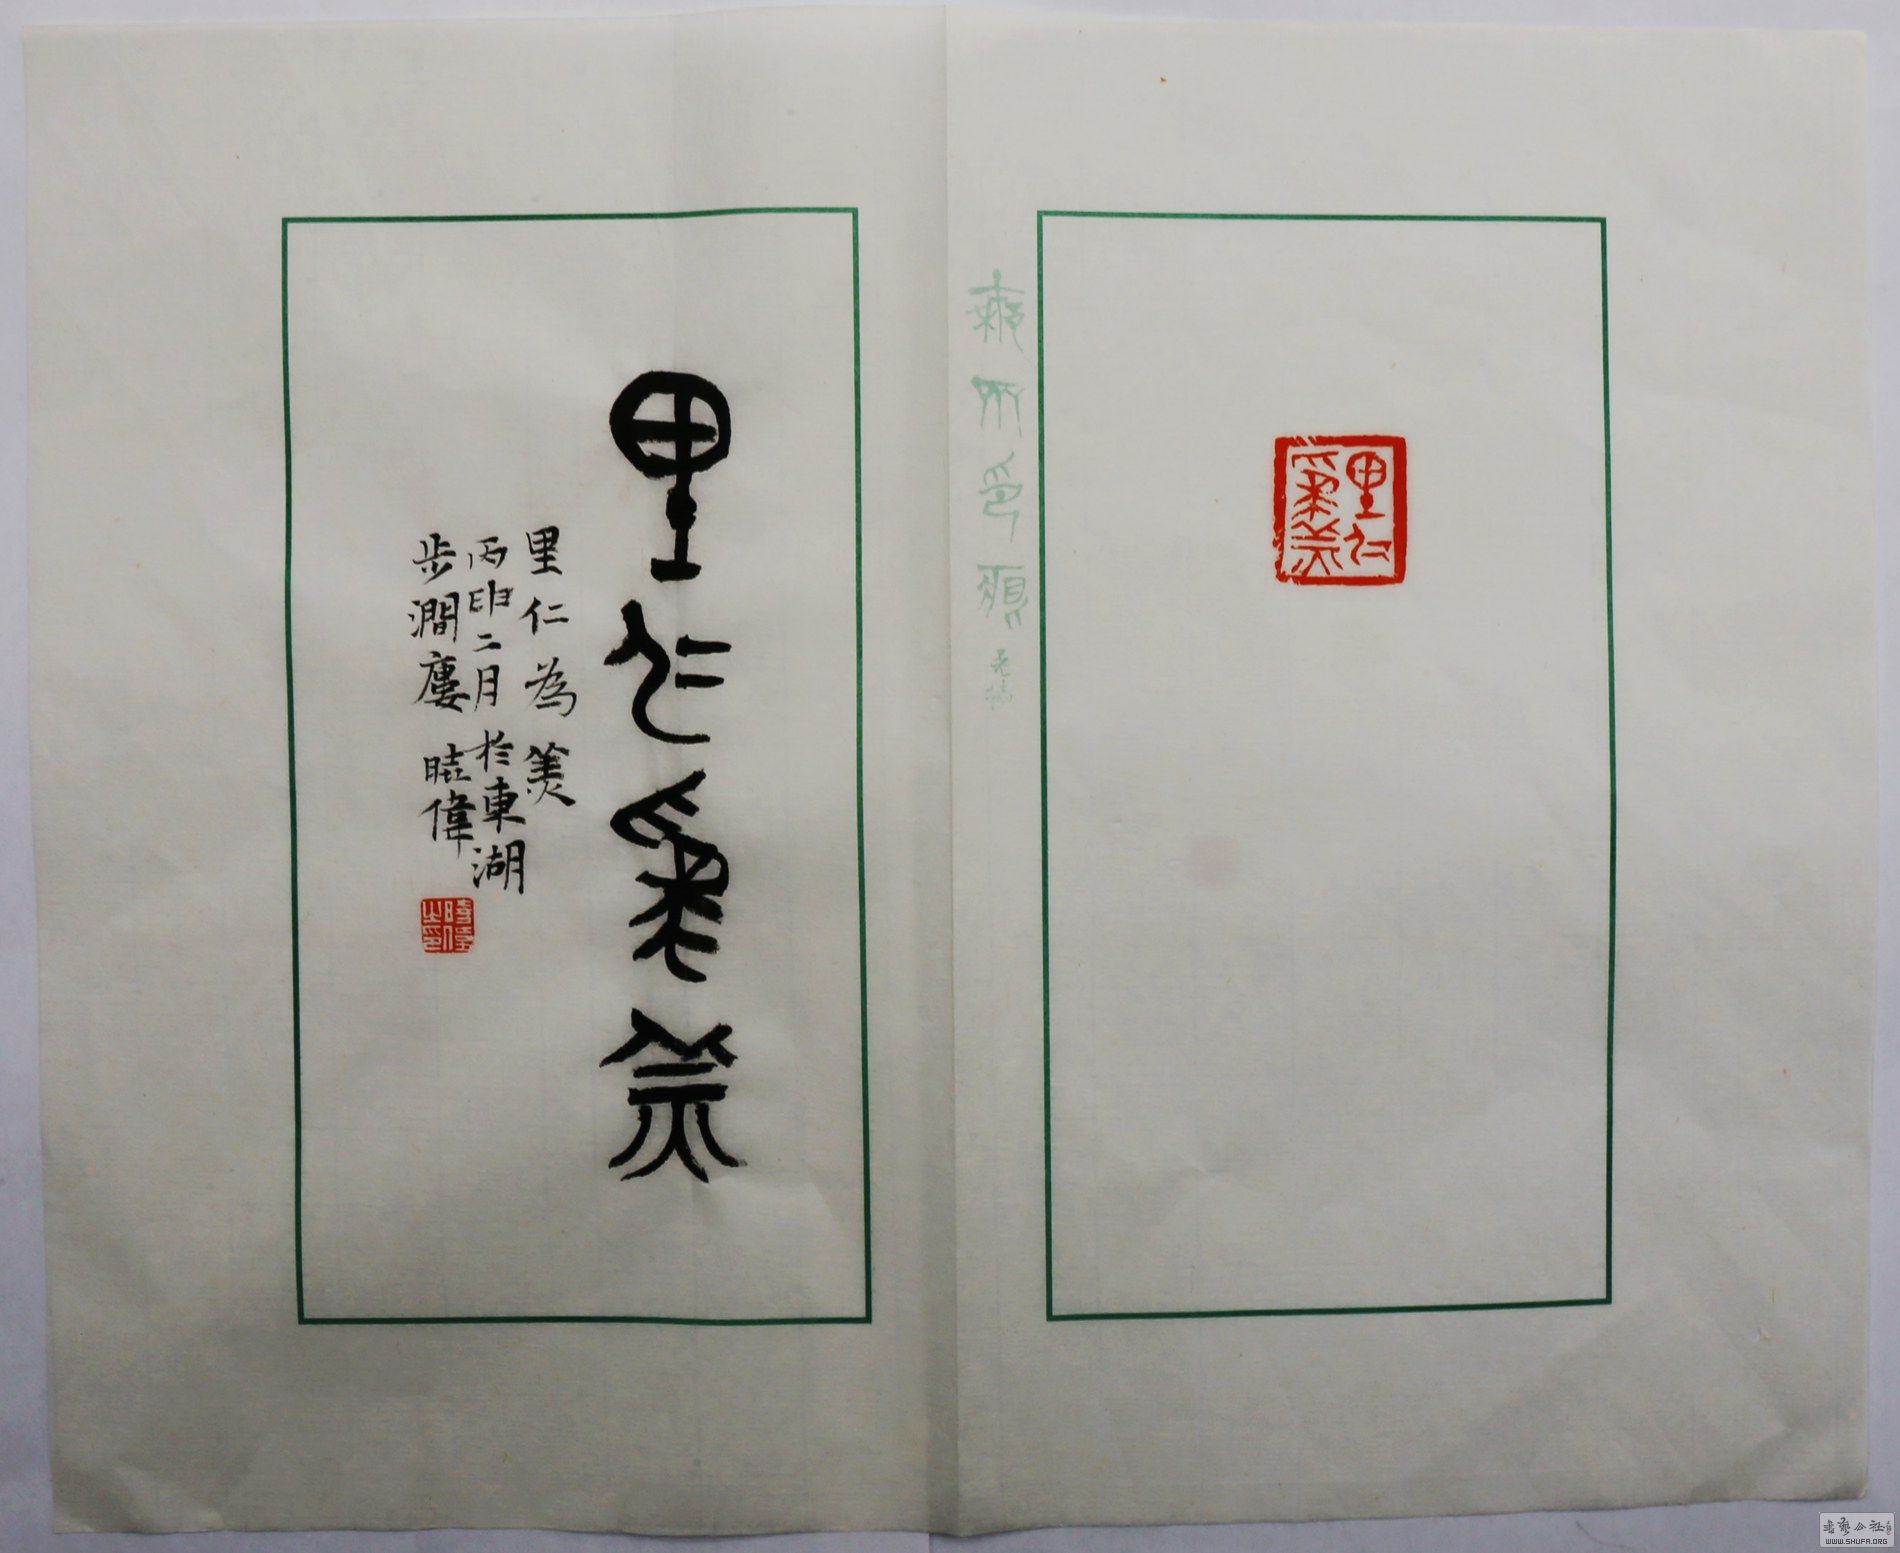 里仁為美
里仁為美
里仁為美
丙申二月於東湖
步澗廔 曉偉
書藝公社
WWW.SHUFA.ORG